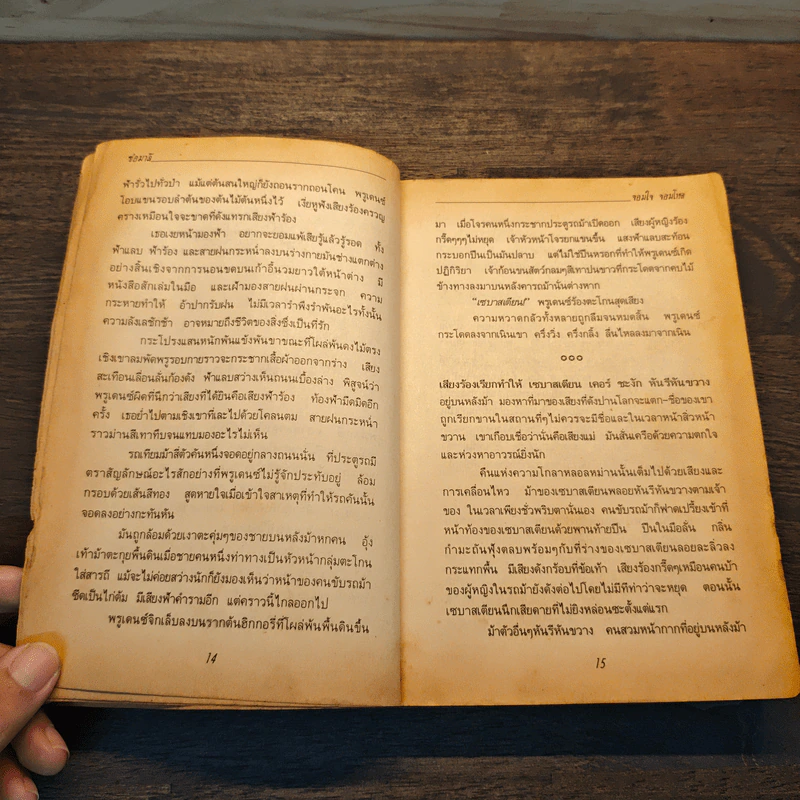 ช่อมาลี
ฟ้ารั่วไปทั่วป่า แม้แต่ต้นสนใหญ่ก็ยังถอนรากถอนโคน พรูเดนซ์
โอบแขนรอบลำต้นของต้นไม้ต้นหนึ่งไว้ เงี่ยหูฟังเสียงร้องครวญ
ครางเหมือนใจจะขาดที่ดังแทรกเสียงฟ้าร้อง
เธอเงยหน้ามองฟ้า อยากจะยอมแพ้เสียรู้แล้วรู้รอด ทั้ง
ฟ้าแลบ ฟ้าร้อง และสายฝนกระหน่ำลงบนร่างกายมันช่างแตกต่าง
อย่างสิ้นเชิงจากการนอนขดบนเก้าอี้นวมยาวใต้หน้าต่าง มี
หนังสือสักเล่มในมือ และเฝ้ามองสายฝนผ่านกระจก ความ
กระหายทำให้ อ้าปากรับฝน ไม่มีเวลารำพึงรำพันอะไรทั้งนั้น
ความลังเลซักช้า อาจหมายถึงชีวิตของสิ่งซึ่งเป็นที่รัก
กระโปรงแสนหนักพันแข้งพันขาขณะที่โผล่พ้นดงไม้ตรง
เชิงเขาลมพัดพรูรอบกายราวจะกระชากเสื้อผ้าออกจากร่าง เสียง
สะเทือนเลื่อนลั่นก้องดัง ฟ้าแลบสว่างเห็นถนนเบื้องล่าง พิสูจน์ว่า
พรูเดนซ์ผิดที่นึกว่าเสียงที่ได้ยินคือเสียงฟ้าร้อง ท้องฟ้ามืดมิดอีก
ครั้ง เธอย่ำไปตามเชิงเขาที่เละไปด้วยโคลนตม สายฝนกระหน่ำ
ราวม่านสีเทาทึบจนแทบมองอะไรไม่เห็น
รถเทียมม้าสี่ตัวคันหนึ่งจอดอยู่กลางถนนนั่น ที่ประตูรถมี
ตราสัญลักษณ์อะไรสักอย่างที่พรูเดนซ์ไม่รู้จักประทับอยู่ ล้อม
กรอบด้วยเส้นสีทอง สูดหายใจเมื่อเข้าใจสาเหตุที่ทำให้รถคันนั้น
จอดลงอย่างกะทันหัน
มันถูกล้อมด้วยเงาตะคุ่มๆของชายบนหลังม้าหกคน อุ้ง
เท้าม้าตะกุยพื้นดินเมื่อชายคนหนึ่งท่าทางเป็นหัวหน้ากลุ่มตะโกน
ใส่สารถี แม้จะไม่ค่อยสว่างนักก็ยังมองเห็นว่าหน้าของคนขับรถม้า
ซีดเป็นไก่ต้ม มีเสียงฟ้าคำรามอีก แต่คราวนี้ไกลออกไป
พรูเดนซ์จิกเล็บลงบนรากต้นฮิกกอรี่ที่โผล่พ้นพื้นดินขึ้น
14
จอมใจ จอมโจร
มา เมื่อโจรคนหนึ่งกระชากประตูรถม้าเปิดออก เสียงผู้หญิงร้อง
กรี๊ดๆๆๆไม่หยุด เจ้าหัวหน้าโจรยกแขนขึ้น แสงฟ้าแลบสะท้อน
กระบอกปืนเป็นมันปลาบ แต่ไม่ใช่ปืนหรอกที่ทำให้พรูเดนซ์เกิด
ปฏิกิริยา เจ้าก้อนขนสัตว์กลมๆสีเทาปนขาวที่กระโดดจากคบไม้
ข้างทางลงมาบนหลังคารถม้านั่นต่างหาก
"เซบาสเตียน!" พรูเดนซ์ร้องตะโกนสุดเสียง
ความหวาดกลัวทั้งหลายถูกลืมจนหมดสิ้น พรูเดนซ์
กระโดดลงจากเนินเขา ครึ่งวิ่ง ครึ่งกลิ้ง ลื่นไหลลงมาจากเนิน
ooo
เสียงร้องเรียกทำให้ เซบาสเตียน เคอร์ ชะงัก หันรีหันขวาง
อยู่บนหลังม้า มองหาที่มาของเสียงที่ดังปานโลกจะแตก-ชื่อของเขา
ถูกเรียกขานในสถานที่ๆไม่ควรจะมีชื่อและในเวลาหน้าสิ่วหน้า
ขวาน เขาเกือบเชื่อว่านั่นคือเสียงแม่ มันสั่นเครือด้วยความตกใจ
และห่วงหาอาวรณ์ยิ่งนัก
คืนแห่งความโกลาหลอลหม่านนั้นเต็มไปด้วยเสียงและ
การเคลื่อนไหว ม้าของเซบาสเตียนพลอยหันรีหันขวางตามเจ้า
ของ ในเวลาเพียงชั่วพริบตานั่นเอง คนขับรถม้าก็ฟาดเปรี้ยงเข้าที่
หน้าท้องของเซบาสเตียนด้วยพานท้ายปืน ปืนในมือลั่น กลิ่น
กำมะถันฟุ้งตลบพร้อมๆกับที่ร่างของเซบาสเตียนลอยละลิ่วลง
กระแทกพื้น มีเสียงดังกร้อบที่ข้อเท้า เสียงร้องกรี๊ดๆเหมือนคนบ้า
ของผู้หญิงในรถม้ายังดังต่อไปโดยไม่มีทีท่าว่าจะหยุด ตอนนั้น
เซบาสเตียนนึกเสียดายที่ไม่ยิงหล่อนซะตั้งแต่แรก
ม้าตัวอื่นๆหันรีหันขวาง คนสวมหน้ากากที่อยู่บนหลังม้า
15